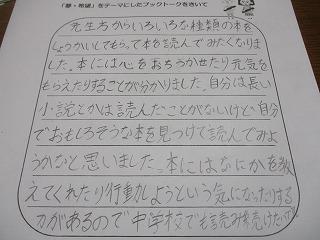 「夢・希望」をテーマにしたブックトークをきいて
先生方からいろいろな種類の本を
しょうかいしてもらって本を読んでみたくなりま
した。本には心をおちつかせたり元気を
もらえたりすることが分かりました。自分は長い
小説とかは読んだことがないけど自分
でおもしろそうな本を見つけて読んでみよ
うかなと思いました。本にはなにかを教
えてくれたり行動しようという気になったりする
力があるので中学校でも読み続けたいです。